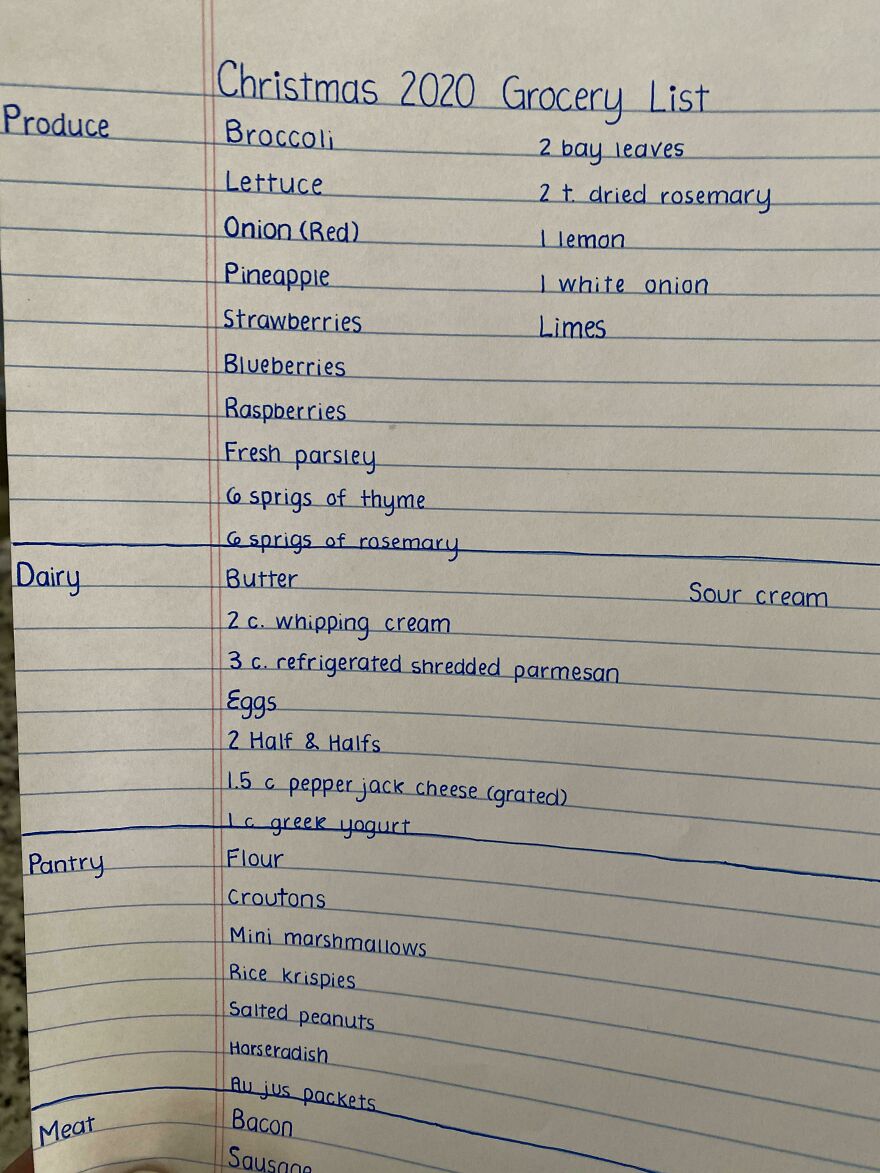 Christmas 2020 Grocery List
Produce
Broccoli
Lettuce
Onion (Red)
Pineapple
Strawberries
Blueberries
Raspberries
Fresh parsley
6 sprigs of thyme
6 sprigs of rosemary
2 bay leaves
2 t. dried rosemary
1 lemon
1 white onion
Limes
Dairy
Butter
2 c. whipping cream
3 c. refrigerated shredded parmesan
Eggs
2 Half & Halfs
1.5 c pepper jack cheese (grated)
1 c greek yogurt
Sour cream
Pantry
Flour
Croutons
Mini marshmallows
Rice krispies
Salted peanuts
Horseradish
Au jus packets
Meat
Bacon
Sausage